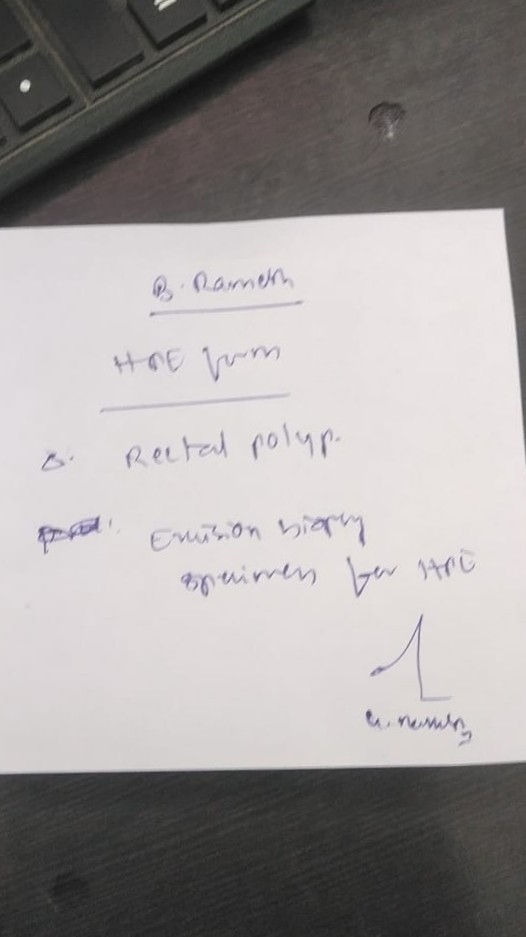 B. Ramesh
HPE form
Δ. Rectal polyp.
Excision biopsy
specimen for HPE